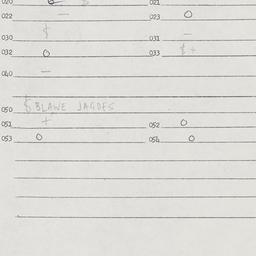 020 021
022 — 023 0
030 $ 031 —
032 0 033 $ +
040 —
$ BLAWE JAGDES
050
051 + 052 0
053 0 054 0